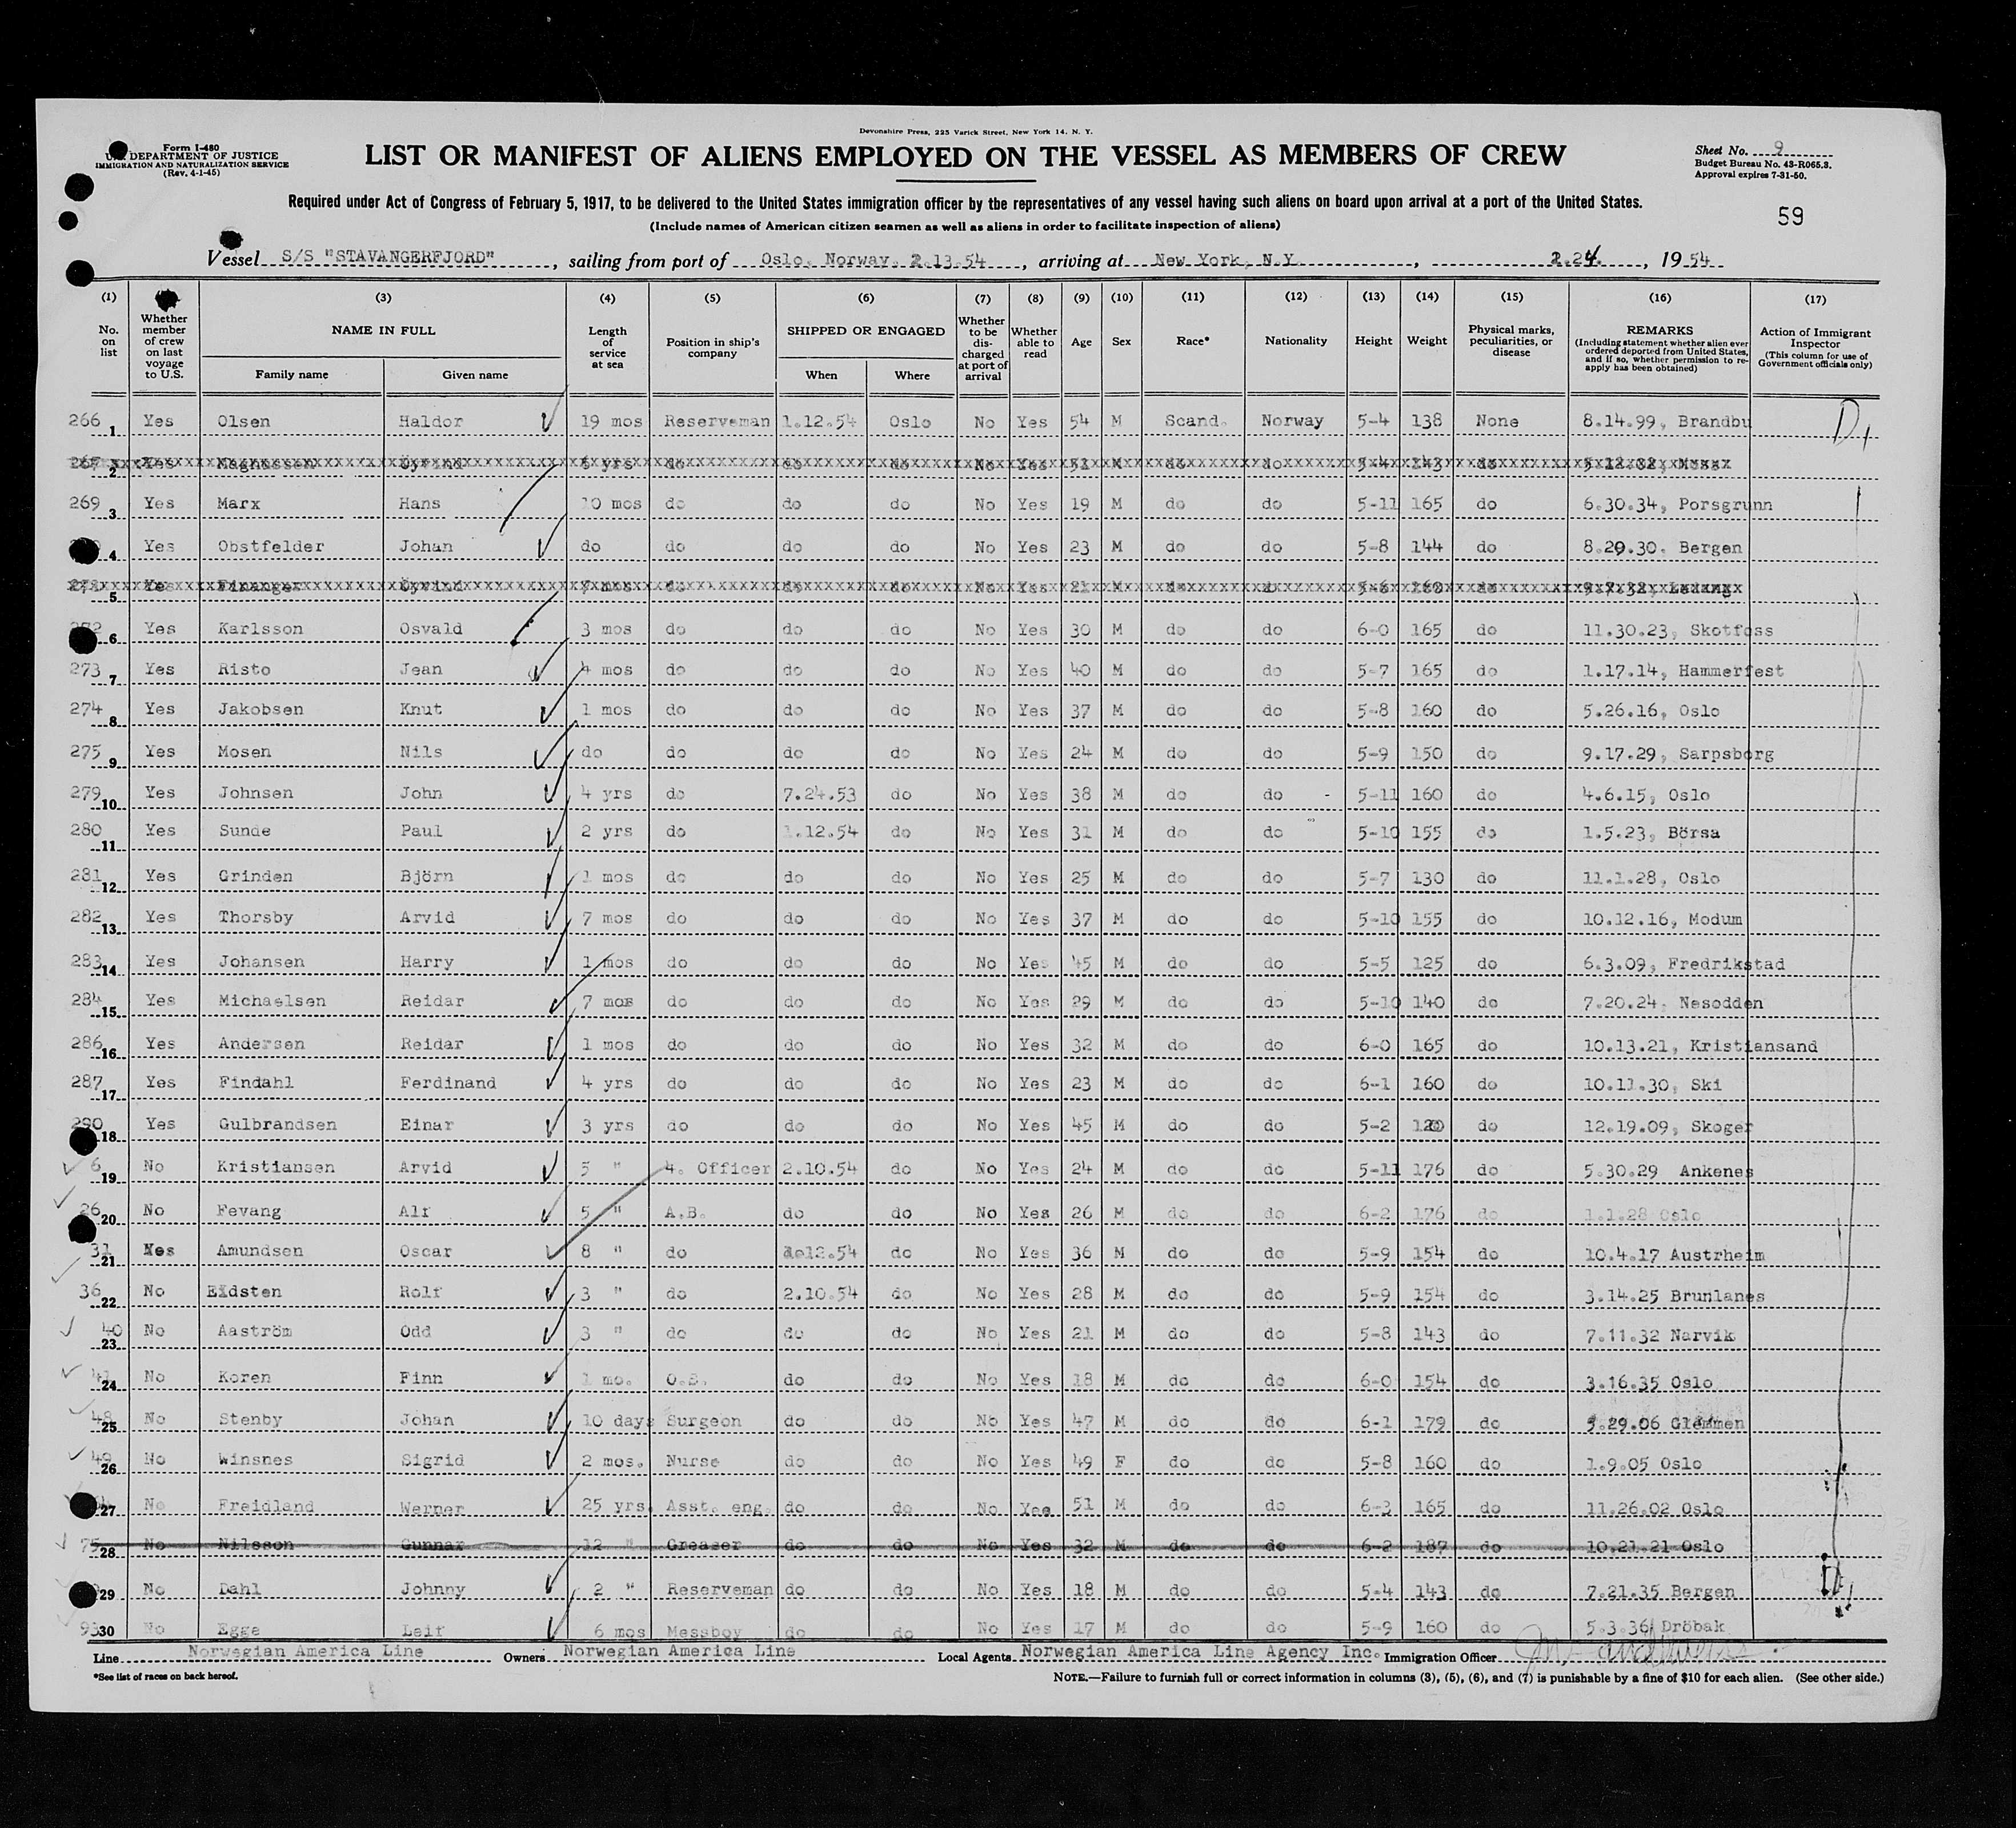 Devonshire Press, 225 Varick Street, New York 14, N. Y.
Form I-480
DEPARTMENT OF JUSTICE
IMMIGRATION AND NATURALIZATION SERVICE
(Rev. 4-1-45)
LIST OR MANIFEST OF ALIENS EMPLOYED ON THE VESSEL AS MEMBERS OF CREW
Sheet No. 9
Budget Bureau No. 43-R065.3.
Approval expires 7-31-50.
Required under Act of Congress of February 5, 1917, to be delivered to the United States immigration officer by the representatives of any vessel having such aliens on board upon arrival at a port of the United States.
(Include names of American citizen seamen as well as aliens in order to facilitate inspection of aliens)
59
Vessel S/S "STAVANGERFJORD", sailing from port of Oslo, Norway. 2.13.54, arriving at New York, N.Y., 2.24., 1954
(1) (3) (4) (5) (6) (7) (8) (9) (10) (11) (12) (13) (14) (15) (16) (17)
No. on list
Whether member of crew on last voyage to U.S.
NAME IN FULL
Family name
Given name
Length of service at sea
Position in ship's company
SHIPPED OR ENGAGED
When
Where
Whether to be discharged at port of arrival
Whether able to read
Age
Sex
Race*
Nationality
Height
Weight
Physical marks, peculiarities, or disease
REMARKS
(Including statement whether alien ever ordered deported from United States, and if so, whether permission to re-apply has been obtained)
Action of Immigrant Inspector
(This column for use of Government officials only)
266 1 Yes Olsen Haldor 19 mos Reserveman 1.12.54 Oslo No Yes 54 M Scand. Norway 5-4 138 None 8.14.99, Brandbu
267 2 Yes Magnussen Öyvind 6 yrs do do do No Yes 51 M do do 5-4 143 do
269 3 Yes Marx Hans 10 mos do do do No Yes 19 M do do 5-11 165 do 6.30.34, Porsgrunn
4 Yes Obstfelder Johan do do do do No Yes 23 M do do 5-8 144 do 8.29.30. Bergen
5 Yes Finanger Öyvind 7 mos do do do No Yes 21 M do do 5-6 160 do
6 Yes Karlsson Osvald 3 mos do do do No Yes 30 M do do 6-0 165 do 11.30.23, Skotfoss
273 7 Yes Risto Jean 4 mos do do do No Yes 40 M do do 5-7 165 do 1.17.14, Hammerfest
274 8 Yes Jakobsen Knut 1 mos do do do No Yes 37 M do do 5-8 160 do 5.26.16, Oslo
275 9 Yes Mosen Nils do do do do No Yes 24 M do do 5-9 150 do 9.17.29, Sarpsborg
279 10 Yes Johnsen John 4 yrs do 7.24.53 do No Yes 38 M do do 5-11 160 do 4.6.15, Oslo
280 11 Yes Sunde Paul 2 yrs do 1.12.54 do No Yes 31 M do do 5-10 155 do 1.5.23, Börsa
281 12 Yes Grinden Björn 1 mos do do do No Yes 25 M do do 5-7 130 do 11.1.28, Oslo
282 13 Yes Thorsby Arvid 7 mos do do do No Yes 37 M do do 5-10 155 do 10.12.16, Modum
283 14 Yes Johansen Harry 1 mos do do do No Yes 45 M do do 5-5 125 do 6.3.09, Fredrikstad
284 15 Yes Michaelsen Reidar 7 mos do do do No Yes 29 M do do 5-10 140 do 7.20.24, Nesodden
286 16 Yes Andersen Reidar 1 mos do do do No Yes 32 M do do 6-0 165 do 10.13.21, Kristiansand
287 17 Yes Findahl Ferdinand 4 yrs do do do No Yes 23 M do do 6-1 160 do 10.11.30, Ski
290 18 Yes Gulbrandsen Einar 3 yrs do do do No Yes 45 M do do 5-2 120 do 12.19.09, Skoger
6 19 No Kristiansen Arvid 5 " 4. Officer 2.10.54 do No Yes 24 M do do 5-11 176 do 5.30.29 Ankenes
26 20 No Fevang Alf 5 " A.B. do do No Yes 26 M do do 6-2 176 do 1.1.28 Oslo
31 21 Yes Amundsen Oscar 8 " do 12.54 do No Yes 36 M do do 5-9 154 do 10.4.17 Austrheim
36 22 No Eidsten Rolf 3 " do 2.10.54 do No Yes 28 M do do 5-9 154 do 3.14.25 Brunlanes
40 23 No Aaström Odd 3 " do do do No Yes 21 M do do 5-8 143 do 7.11.32 Narvik
41 24 No Koren Finn 1 mo. O.S. do do No Yes 18 M do do 6-0 154 do 3.16.35 Oslo
48 25 No Stenby Johan 10 days Surgeon do do No Yes 47 M do do 6-1 179 do 5.29.06 Glemmen
49 26 No Winsnes Sigrid 2 mos. Nurse do do No Yes 49 F do do 5-8 160 do 1.9.05 Oslo
27 No Freidland Werner 25 yrs. Asst. eng. do do No Yes 51 M do do 6-3 165 do 11.26.02 Oslo
75 28 No Nilsson Gunnar 12 " Greaser do do No Yes 32 M do do 6-2 187 do 10.21.21 Oslo
29 No Dahl Johnny 2 " Reserveman do do No Yes 18 M do do 5-4 143 do 7.21.35 Bergen
93 30 No Egge Leif 6 mos Messboy do do No Yes 17 M do do 5-9 160 do 5.3.36 Dröbak
Line Norwegian America Line Owners Norwegian America Line Local Agents Norwegian America Line Agency Inc. Immigration Officer
*See list of races on back hereof.
NOTE.—Failure to furnish full or correct information in columns (3), (5), (6), and (7) is punishable by a fine of $10 for each alien. (See other side.)